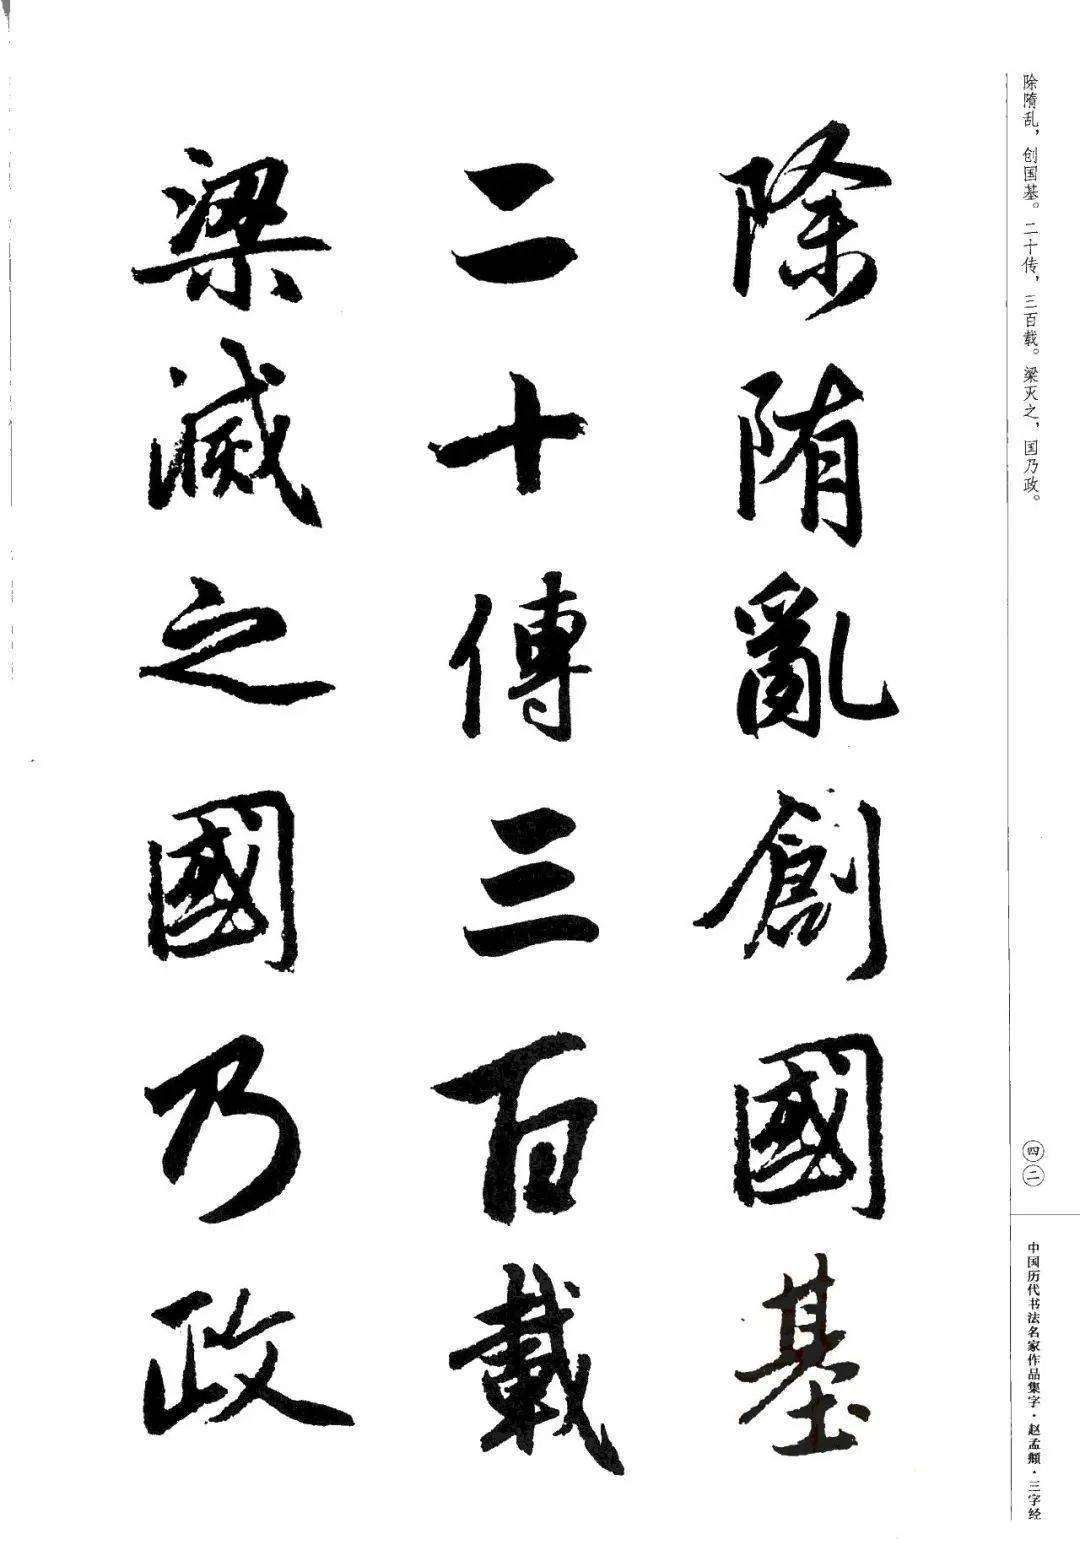 除隋亂，创国基。二十传，三百载。梁灭之，国乃政。
除隋亂創國基
二十傳三百載
梁滅之國乃政
四二
中国历代书法名家作品集字·赵孟頫·三字经